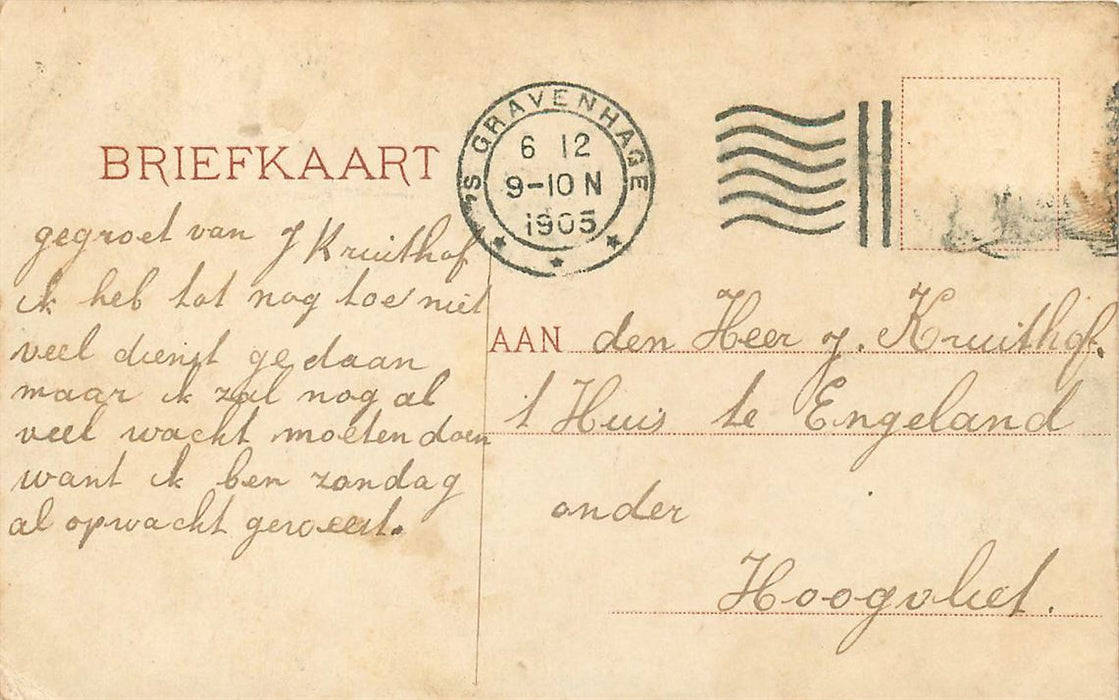 BRIEFKAART
'S GRAVENHAGE
6 12
9-10 N
1905
gegroet van J Kruithof
ik heb tot nog toe niet
veel dienst gedaan
maar ik zal nog al
veel wacht moeten doen
want ik ben zondag
al opwacht geweest.
AAN den Heer J. Kruithof.
t Huis te Engeland
onder
Hoogvliet.